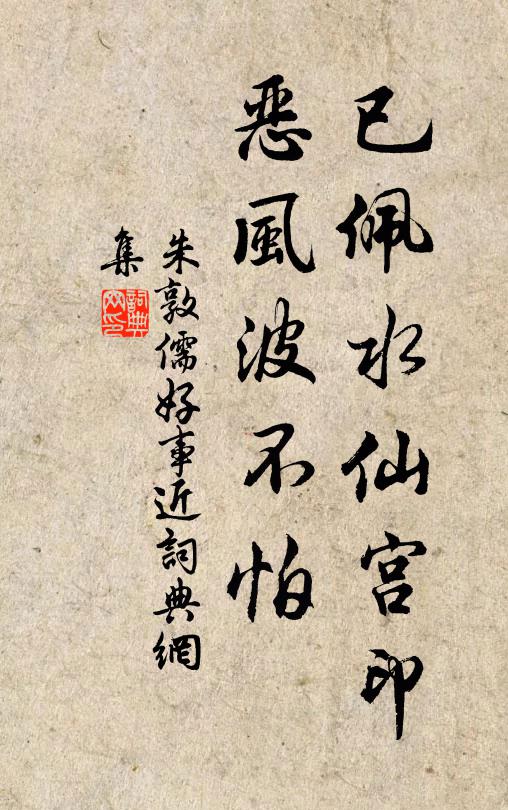 已佩水仙宫印
惡風波不怕
朱敦儒好事近詞典網
集
詞典
网印